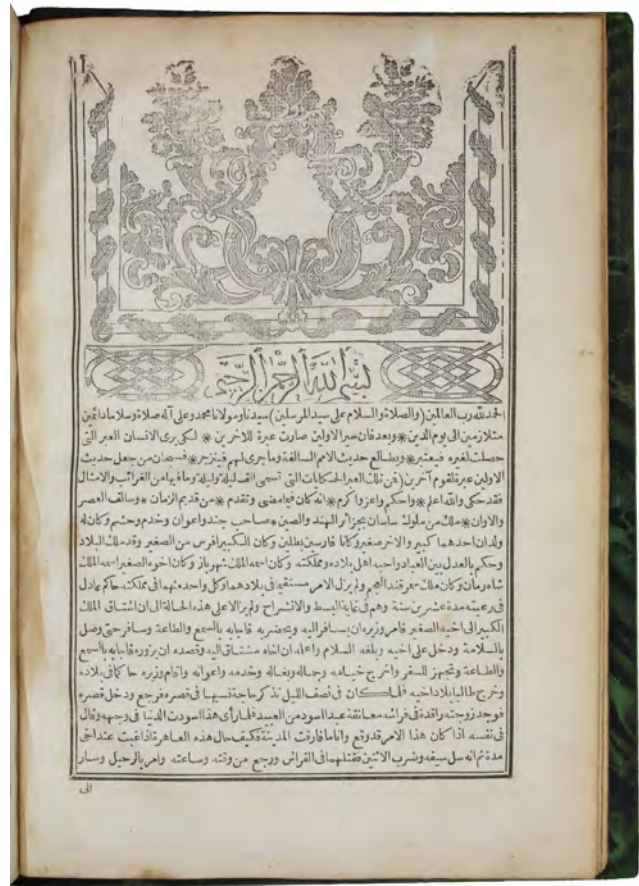 بسم الله الرحمن الرحيم
الحمد لله رب العالمين (والصلاة والسلام على سيد المرسلين) سيدنا ومولانا محمد وعلى آله صلاة وسلاما دائمين
متلازمين الى يوم الدين * وبعد فان سير الاولين صارت عبرة للاخرين * لكى يرى الانسان العبر التى
حصلت لغيره فيعتبر * ويطالع حديث الامم السالفة وما جرى لهم فينزجر * فسبحان من جعل حديث
الاولين عبرة لقوم آخرين (فن تلك العبر الحكايات التى تسمى الف ليلة وليلة وما فيها من الغرائب والامثال
فقد حكى والله اعلم * واحكم واعز واكرم * انه كان فيما مضى وتقدم * من قديم الزمان * وسالف العصر
والاوان * ملك من ملوك ساسان بجزائر الهند والصين * صاحب جند واعوان وخدم وحشم وكان له
ولدان احدهما كبير والاخر صغير وكانا فارسين بطلين وكان الكبير افرس من الصغير وقد ملك البلاد
وحكم بالعدل بين العباد واحبه اهل بلاده ومملكته وكان اسمه الملك شهرباز وكان اخوه الصغير اسمه الملك
شاه زمان وكان ملك سمرقند العجم ولم يزل الامر مستقيما فى بلادهما وكل واحد منهما فى مملكته حاكم عادل
فى رعيته مدة عشرين سنة وهم فى غاية البسط والانشراح ولم يزالا على هذه الحالة الى ان اشتاق الملك
الكبير الى اخيه الصغير فامر وزيره ان يسافر اليه ويحضر به فاجابه بالسمع والطاعة وسافر حتى وصل
بالسلامة ودخل على اخيه وبلغه السلام واعلمه ان اخاه مشتاق اليه وقصده ان يزوره فاجابه بالسمع
والطاعة وتجهز للسفر واخرج خيامه وجماله وبغاله وخدمه واعوانه واقام وزيره حاكما فى بلاده
وخرج طالبا بلاد اخيه فلما كان فى نصف الليل تذكر حاجة نسيها فى قصره فرجع ودخل قصره
فوجد زوجته راقدة فى فراشه معانقة عبدا اسود من العبيد فلما رأى هذا اسودت الدنيا فى وجهه وقال
فى نفسه اذا كان هذا الامر قد وقع وانا ما فارقت المدينة فكيف حال هذه العاهرة اذا غبت عند اخى
مدة ثم انه سل سيفه وضرب الاثنين فقتلهما فى الفراش ورجع من وقته وساعته وامر بالرحيل وسار
الى